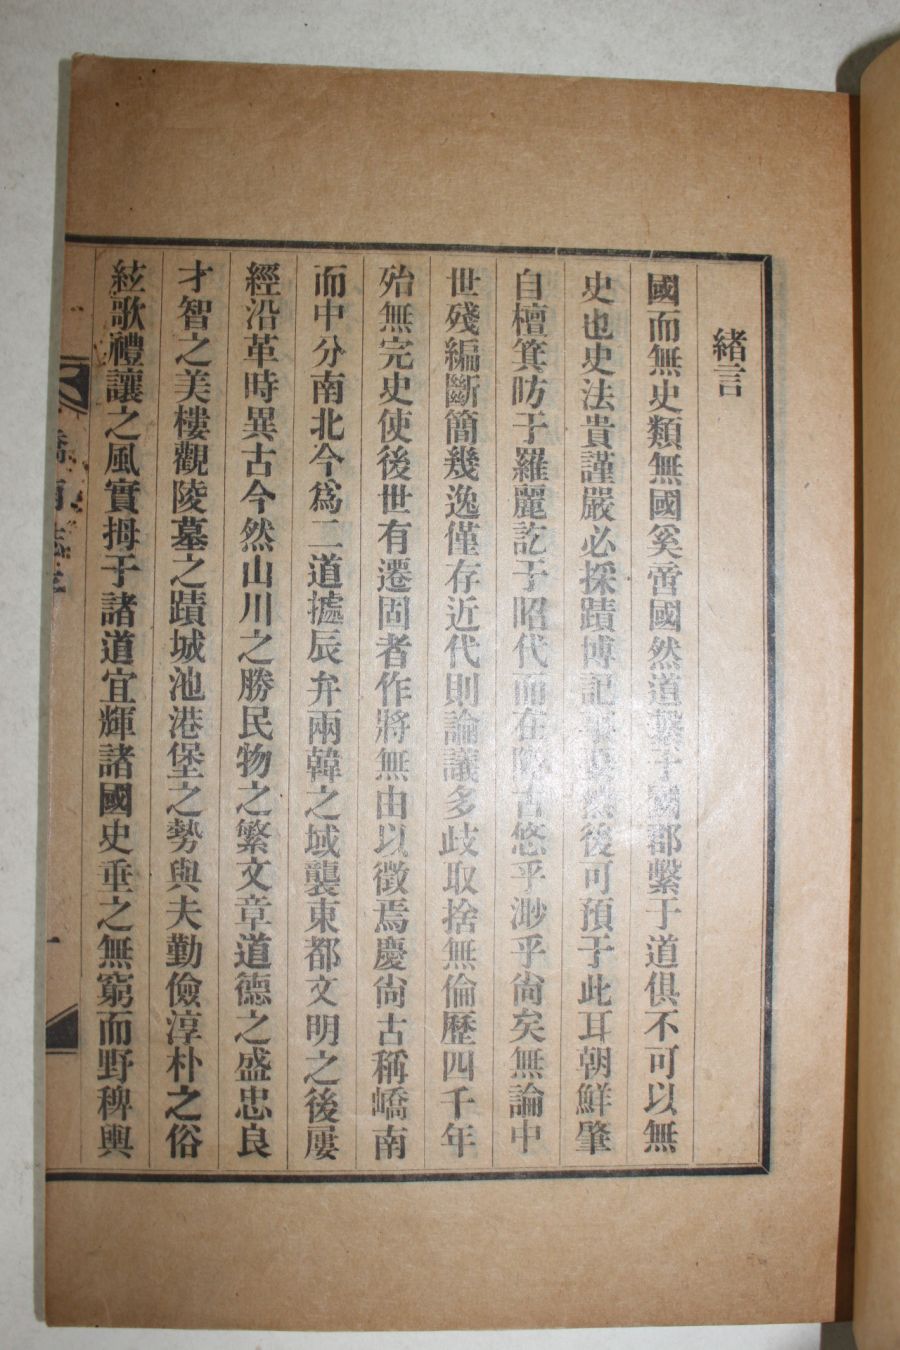 緒言
國而無史類無國奚啻國然道繫于國郡繫于道俱不可以無
史也史法貴謹嚴必採蹟博記然後可預于此耳朝鮮肇
自檀箕昉于羅麗訖于昭代而在隆古悠乎渺乎尙矣無論中
世殘編斷簡幾逸僅存近代則論議多歧取捨無倫歷四千年
殆無完史使後世有遷固者作將無由以徵焉慶尙古稱嶠南
而中分南北今爲二道據辰弁兩韓之域襲東都文明之後屢
經沿革時異古今然山川之勝民物之繁文章道德之盛忠良
才智之美樓觀陵墓之蹟城池港堡之勢與夫勤儉淳朴之俗
絃歌禮讓之風實拇于諸道宜輝諸國史垂之無窮而野稗輿
嶠南誌
一